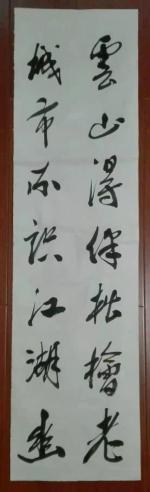 雲山得伴松檜老
城市不識江湖幽